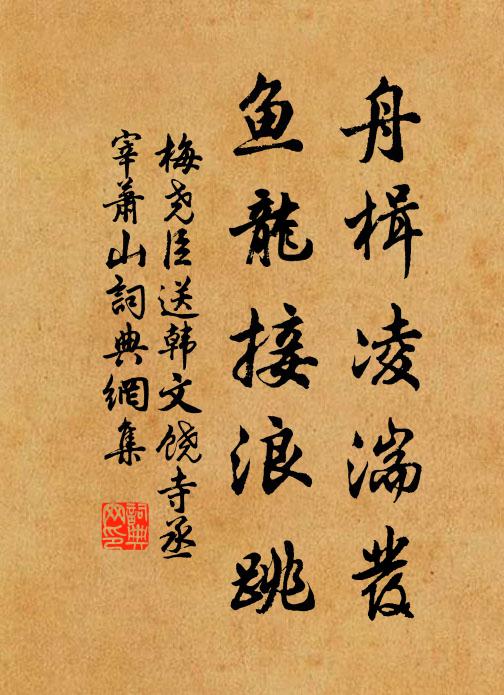 舟楫凌湍發
鱼龍接浪跳
梅尧臣送韩文饶寺丞
宰萧山詞典網集
詞典
网印